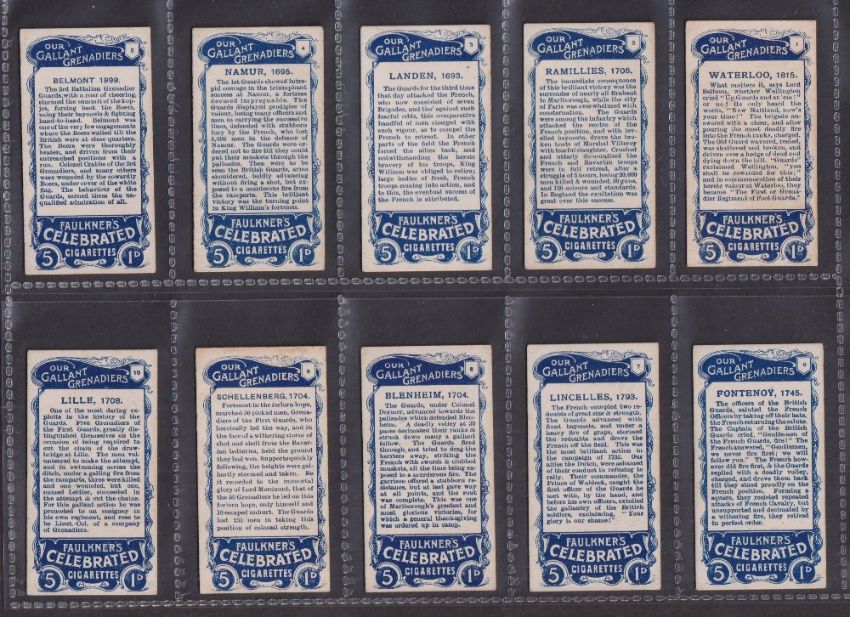 OUR
GALLANT
GRENADIERS
BELMONT 1899.
The 3rd Battalion Grenadier
Guards, with a roar of cheering,
stormed the summit of the kopjes,
forcing back the Boers,
using their bayonets & fighting
hand-to-hand. Belmont was
one of the very few engagements
where the Boers waited till the
British were at close quarters.
The Boers were thoroughly
beaten, and driven from their
entrenched positions with a
run. Colonel Crabbe of the 3rd
Grenadiers, and many others
were wounded by the cowardly
Boers, under cover of the white
flag. The behaviour of the
Guards, earned them the
qualified admiration of all.
FAULKNER'S
CELEBRATED
5 CIGARETTES 1D
OUR
GALLANT
GRENADIERS
4
NAMUR, 1695.
The 1st Guards showed intrepid
courage in the triumphant
success at Namur, a fortress
deemed impregnable. The
Guards displayed prodigies of
valour, losing many officers and
men in carrying the successive
lines, defended with stubborn
fury by the French, who lost
5,000 men in the defence of
Namur. The Guards were ordered
not to fire till they could
put their muskets through the
palisades. Then were to be
seen the British Guards, arms
considered, boldly advancing
without firing a shot, but exposed
to a murderous fire from
the ramparts. This brilliant
victory was the turning point
in King William's fortunes.
FAULKNER'S
CELEBRATED
5 CIGARETTES 1D
OUR
GALLANT
GRENADIERS
LANDEN, 1693.
The Guards for the third time
that day attacked the French,
who now consisted of seven
Brigades, and tho' against such
fearful odds, this comparative
handful of men charged with
such vigour, as to compel the
French to retreat. In other
parts of the field the French
forced the way back, and
notwithstanding the heroic
bravery of his troops, King
William was obliged to retire;
large bodies of fresh French
troops coming into action, and
to this, the eventual success of
the French is attributed.
FAULKNER'S
CELEBRATED
5 CIGARETTES 1D
OUR
GALLANT
GRENADIERS
RAMILLIES, 1706.
The immediate consequences
of this brilliant victory was the
surrender of nearly all Brabant
to Marlborough, while the city
of Paris was overwhelmed with
consternation.
were among the infantry which
attacked the centre of the
French position, and with levelled
bayonets, drove the broken
hosts of Marshal Villeroy
with fearful slaughter. Crushed
and utterly demoralised the
French and Bavarian troops
were in full retreat, after a
struggle of 3 hours, losing 20,000
men killed & wounded, 50 guns,
and 120 colours and standards.
In England the exultation was
great over this success.
FAULKNER'S
CELEBRATED
5 CIGARETTES 1D
OUR
GALLANT
GRENADIERS
1
WATERLOO, 1815.
What matters it, says Lord
Saltoun, whether Wellington
cried "Up Guards and at them"
or no! He only heard the
words, "Now Maitland, now's
your time!" The brigade answered
with a cheer, and after
pouring the most deadly fire
into the French ranks, charged.
The Old Guard wavered, reeled,
were scattered and broken, and
driven over a hedge of dead and
dying down the hill. "Guards"
exclaimed Wellington, "you
shall be rewarded for this";
and in commemoration of their
heroic valour at Waterloo, they
became the "First or Grenadier
Regiment of Foot Guards."
FAULKNER'S
CELEBRATED
5 CIGARETTES 1D
OUR
GALLANT
GRENADIERS
10
LILLE, 1708.
One of the most daring exploits
in the history of the
Guards. Five Grenadiers of
the First Guards, greatly distinguished
themselves on the
occasion of being required to
cut the chain of the drawbridge
at Lille. The men volunteered
to make the attempt,
and in swimming across the
ditch, under a galling fire from
the ramparts, three were killed
and one wounded, but one,
named Lettler, succeeded in
the attempt & cut the chains.
For this gallant action he was
promoted to an ensigncy in
his own regiment, and rose to
be Lieut.-Col. of a company
of Grenadiers.
FAULKNER'S
CELEBRATED
5 CIGARETTES 1D
OUR
GALLANT
GRENADIERS
SCHELLENBERG, 1704.
Foremost in the forlorn hope,
marched 50 picked men, Grenadiers
of the First Guards, who
heroically led the way, and in
the face of a withering storm of
shot and shell from the Bavarian
batteries, held the ground
they had won. Supports quickly
following, the heights were gallantly
stormed and taken.
it recorded to the immortal
glory of Lord Mordaunt, that of
the 50 Grenadiers he led on this
forlorn hope, only himself and
10 escaped unhurt. The Guards
lost 231 men in taking this
position of colossal strength.
FAULKNER'S
CELEBRATED
5 CIGARETTES 1D
OUR
GALLANT
GRENADIERS
BLENHEIM, 1704.
The Guards, under Colonel
Dormer, advanced towards the
palisades which defended Blenheim.
A deadly volley at 30
paces decimated their ranks &
struck down many a gallant
fellow. The Guards fired
through, and tried to drag the
barriers away, striking the
French with swords & clubbed
muskets, all the time being exposed
to a murderous fire. The
garrison offered a stubborn resistance,
but at last gave way
at all points, and the rout
was complete. This was one
of Marlborough's greatest and
most glorious victories, for
which a general thanksgiving
was ordered up in camp.
FAULKNER'S
CELEBRATED
5 CIGARETTES 1D
OUR
GALLANT
GRENADIERS
7
LINCELLES, 1793.
The French occupied two redoubts
of great size & strength.
The Guards advanced with
fixed bayonets, and under a
heavy fire of grape, stormed
the redoubts and drove the
French off the field. This was
the most brilliant action in
the campaign of 1793. Our
allies the Dutch, were ashamed
of their conduct in refusing to
rally. Their commander, the
Prince of Waldeck, caught the
first officer of the Guards he
met with, by the hand, and
before his own officers, extolled
the gallantry of the British
soldiers, exclaiming, "Your
glory is our shame!"
FAULKNER'S
CELEBRATED
5 CIGARETTES 1D
OUR
GALLANT
GRENADIERS
6
FONTENOY, 1745.
The officers of the British
Guards, saluted the French
Officers by taking off their hats,
the French returning the salute.
The Captain of the British
Guards cried, "Gentlemen of
the French Guards, fire!" The
Frenchanswered, "Gentlemen,
we never fire first; we will
follow you." The French however
did fire first, & the Guards
replied with a deadly volley,
charged, and drove them back
till they stood proudly on the
French position. Forming a
square, they resisted repeated
attacks of French Cavalry, but
unsupported and decimated by
a withering fire, they retired
in perfect order.
FAULKNER'S
CELEBRATED
5 CIGARETTES 1D